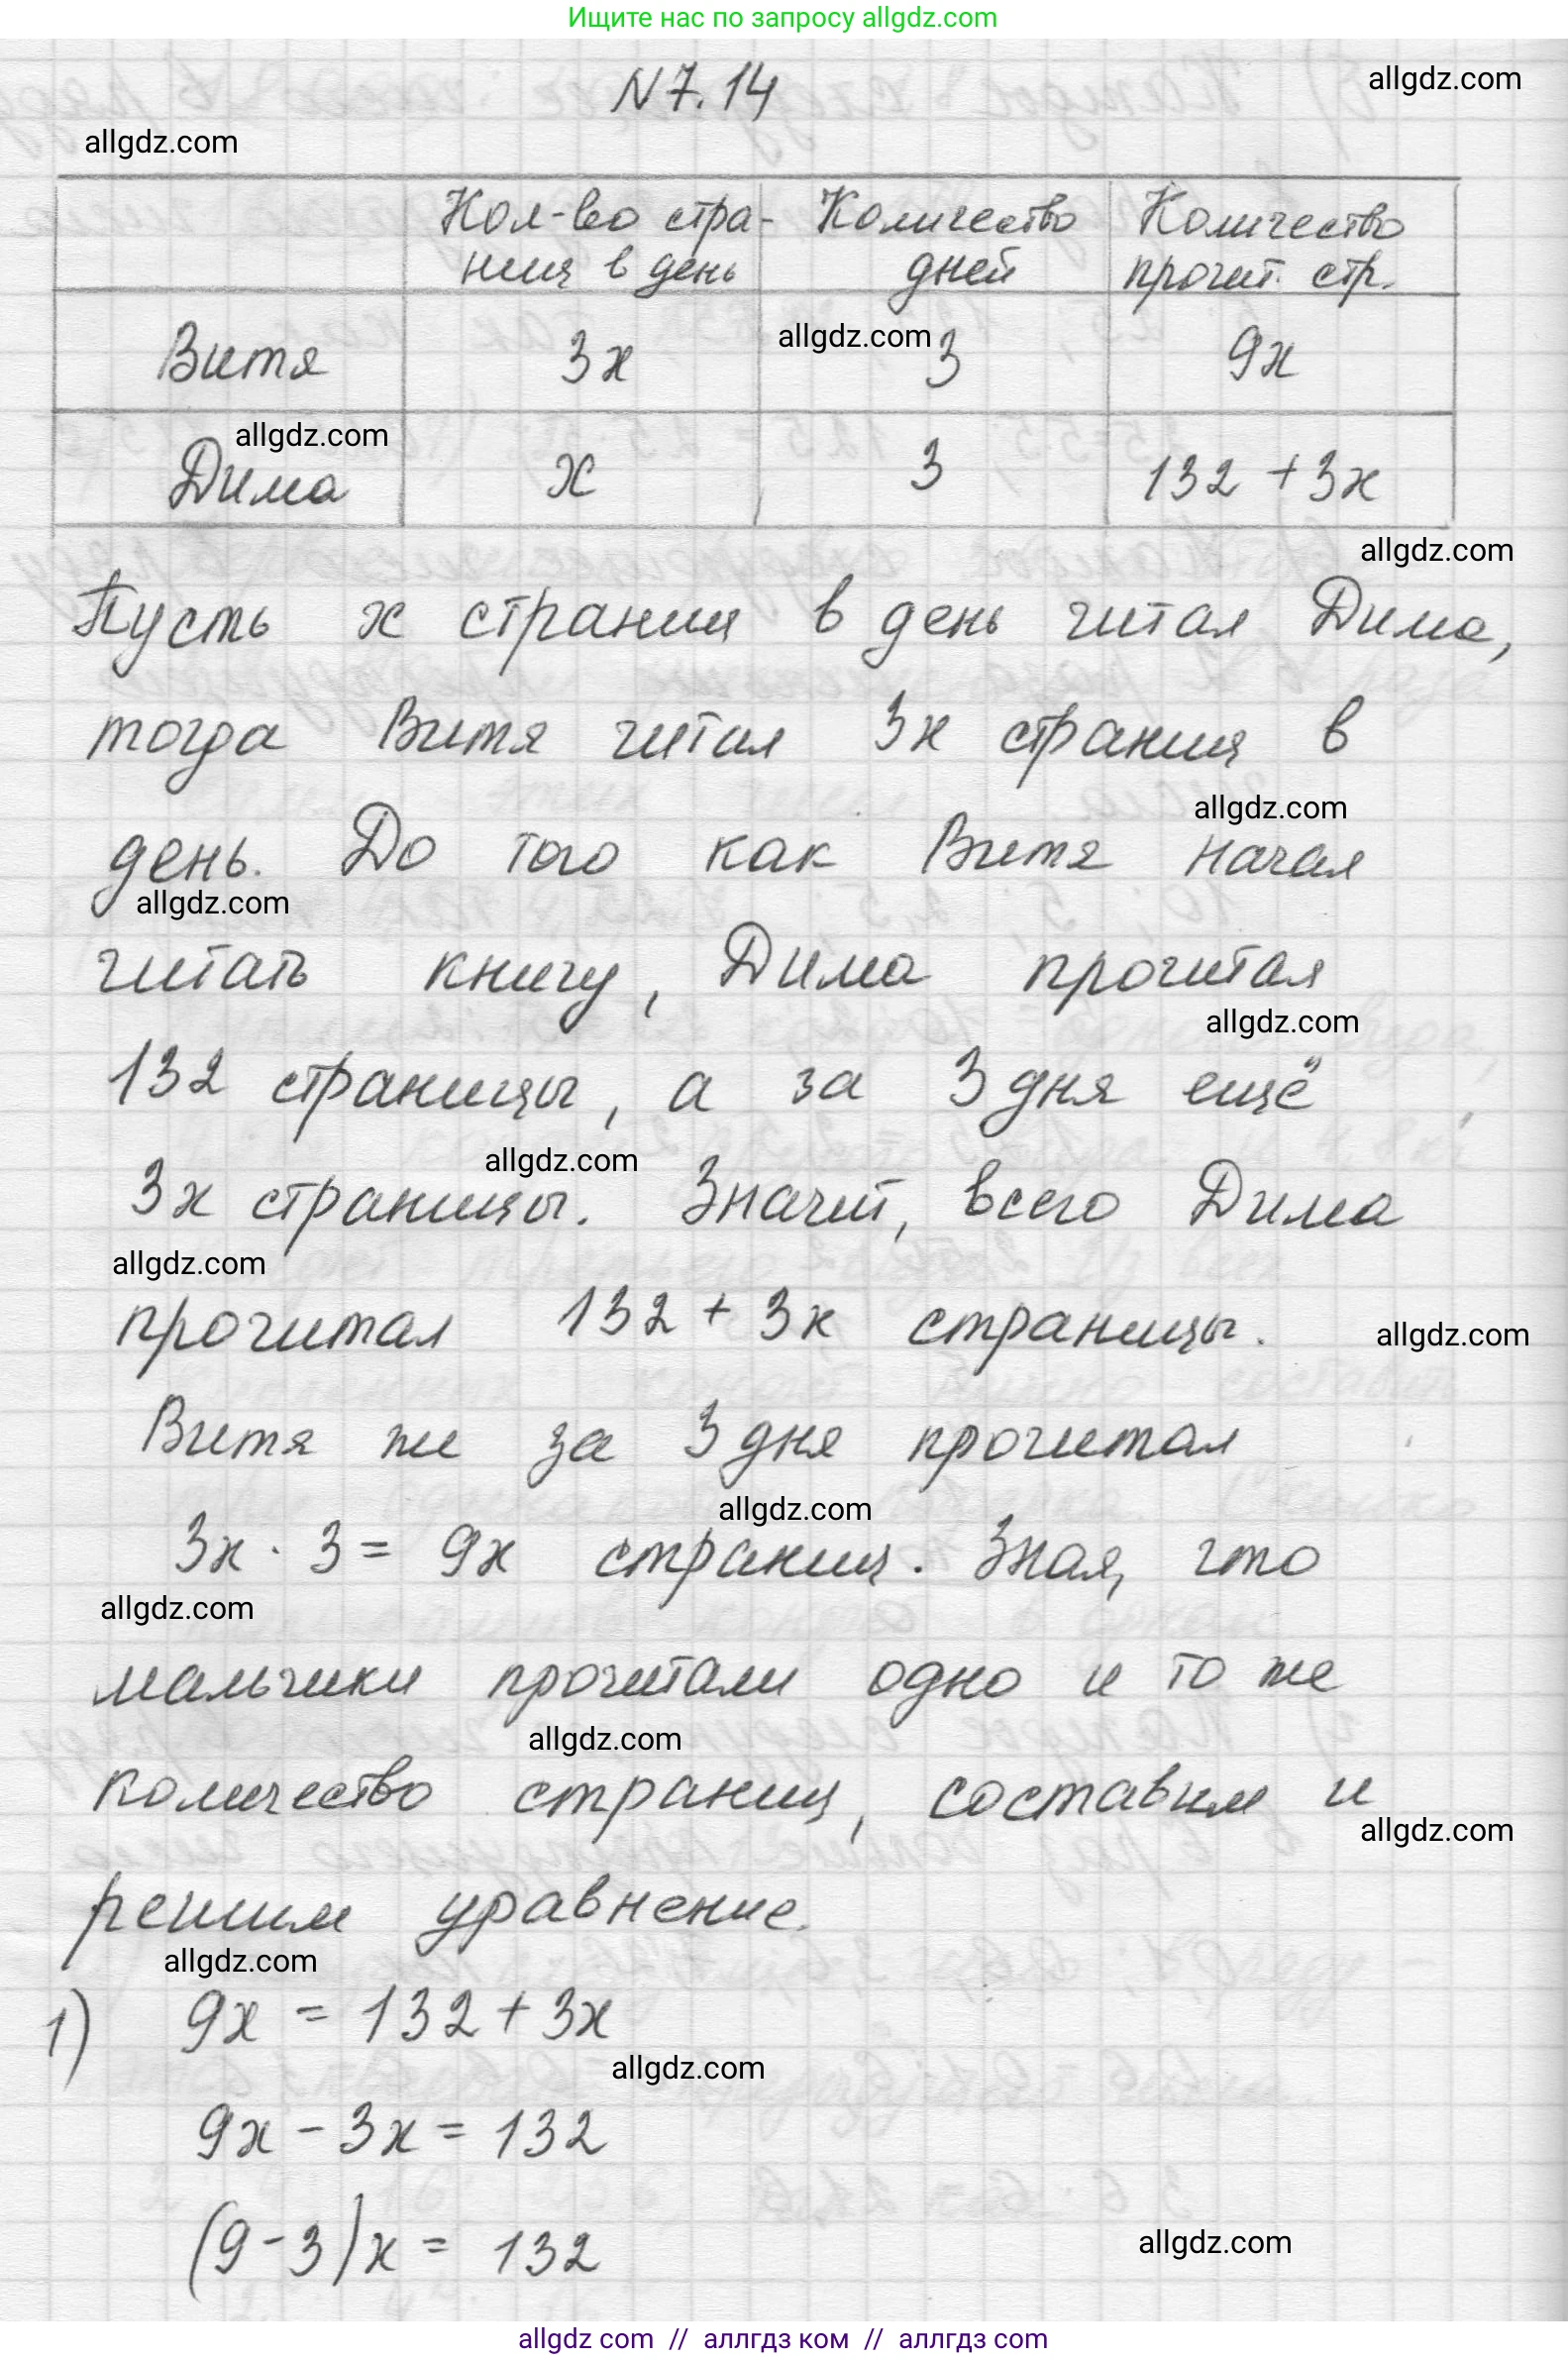 Ищите нас по запросу allgdz.com
N 7.14
allgdz.com
allgdz.com
Кол-во стра- Количество Количество
ниц в день дней прочит. стр.
Витя 3x 3 9x
allgdz.com
allgdz.com
Дима x 3 132 + 3x
allgdz.com
Пусть x страниц в день читал Дима,
тогда Витя читал 3x страниц в
allgdz.com
день. До того как Витя начал
allgdz.com
читать книгу, Дима прочитал
allgdz.com
132 страницы, а за 3 дня ещё
allgdz.com
3x страницы. Значит, всего Дима
allgdz.com
прочитал 132 + 3x страницы.
allgdz.com
Витя же за 3 дня прочитал
allgdz.com
3x · 3 = 9x страниц. Зная, что
allgdz.com
мальчики прочитали одно и то же
allgdz.com
количество страниц, составим и
allgdz.com
решим уравнение.
allgdz.com
1) 9x = 132 + 3x
allgdz.com
9x - 3x = 132
(9-3)x = 132
allgdz.com
allgdz com // аллгдз ком // аллгдз com